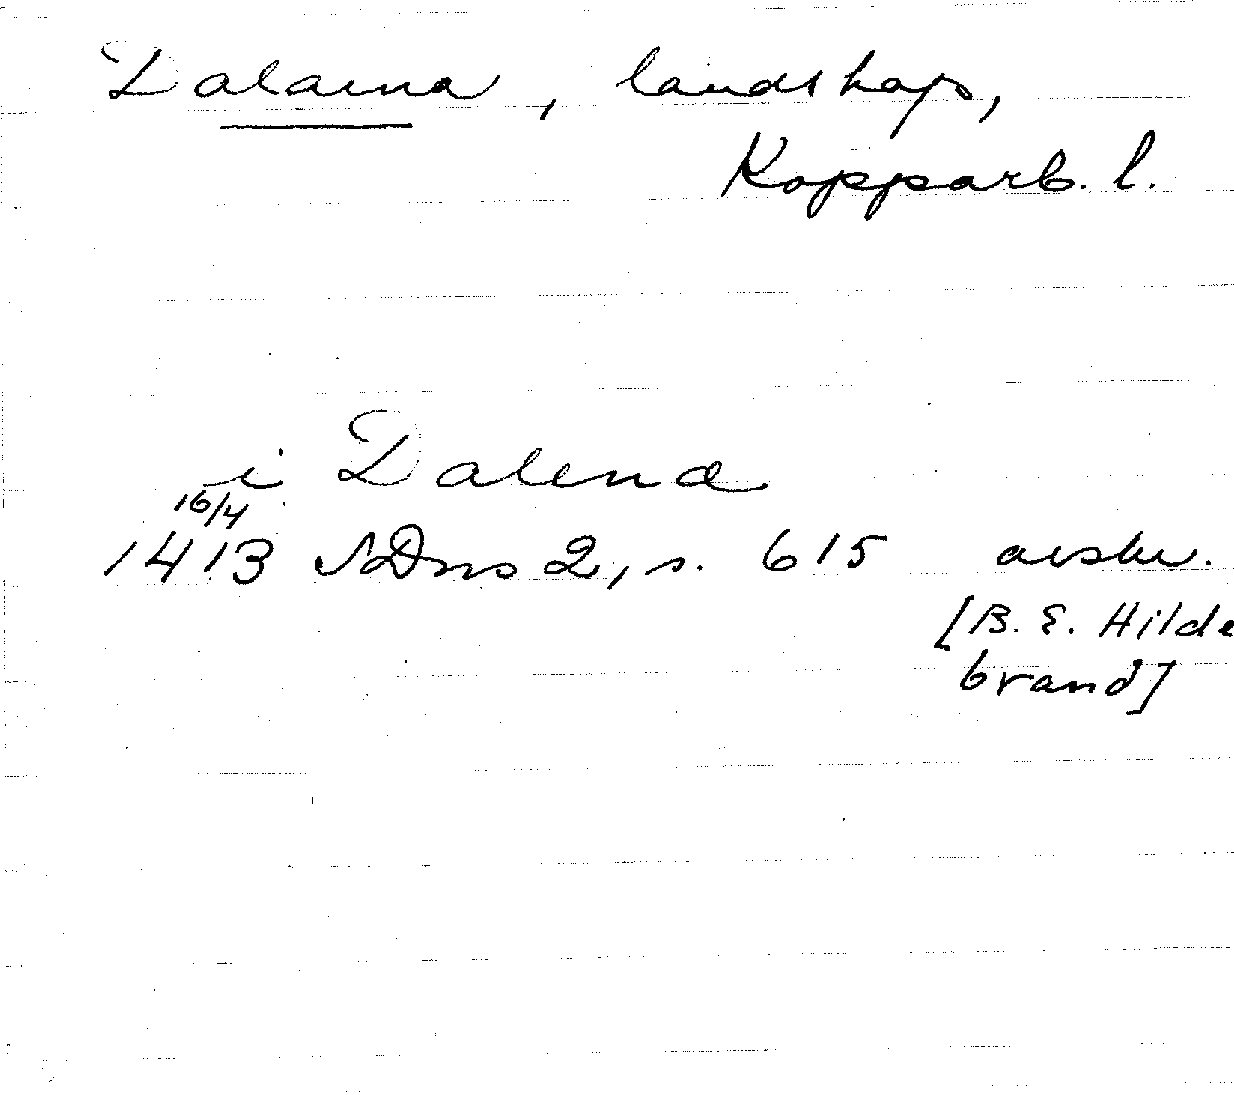 Dalarna, landskap,
Kopparb. l.
i Dalena
16/4
1413 SDns 2, s. 615 avskr.
[B. E. Hilde
brand]